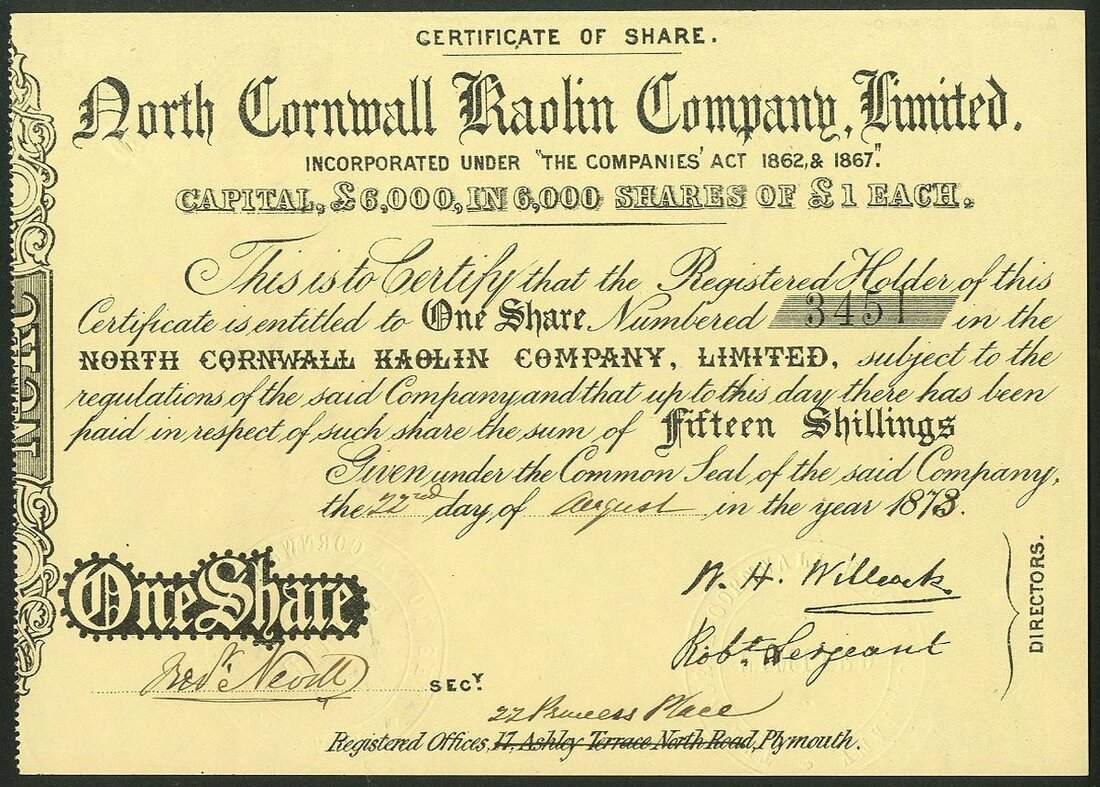 CERTIFICATE OF SHARE.
North Cornwall Kaolin Company, Limited.
INCORPORATED UNDER "THE COMPANIES' ACT 1862, & 1867".
CAPITAL, £6,000, IN 6,000 SHARES OF £1 EACH.
This is to Certify that the Registered Holder of this
Certificate is entitled to One Share Numbered 3451 in the
NORTH CORNWALL KAOLIN COMPANY, LIMITED, subject to the
regulations of the said Company and that up to this day there has been
paid in respect of such share the sum of Fifteen Shillings
Given under the Common Seal of the said Company,
the 22nd day of August in the year 1873.
One Share
W. H. Willcocks
Robt. Sergeant
DIRECTORS.
Nevill SECY.
22 Princess Place
Registered Offices, 17, Ashley Terrace North Road, Plymouth.